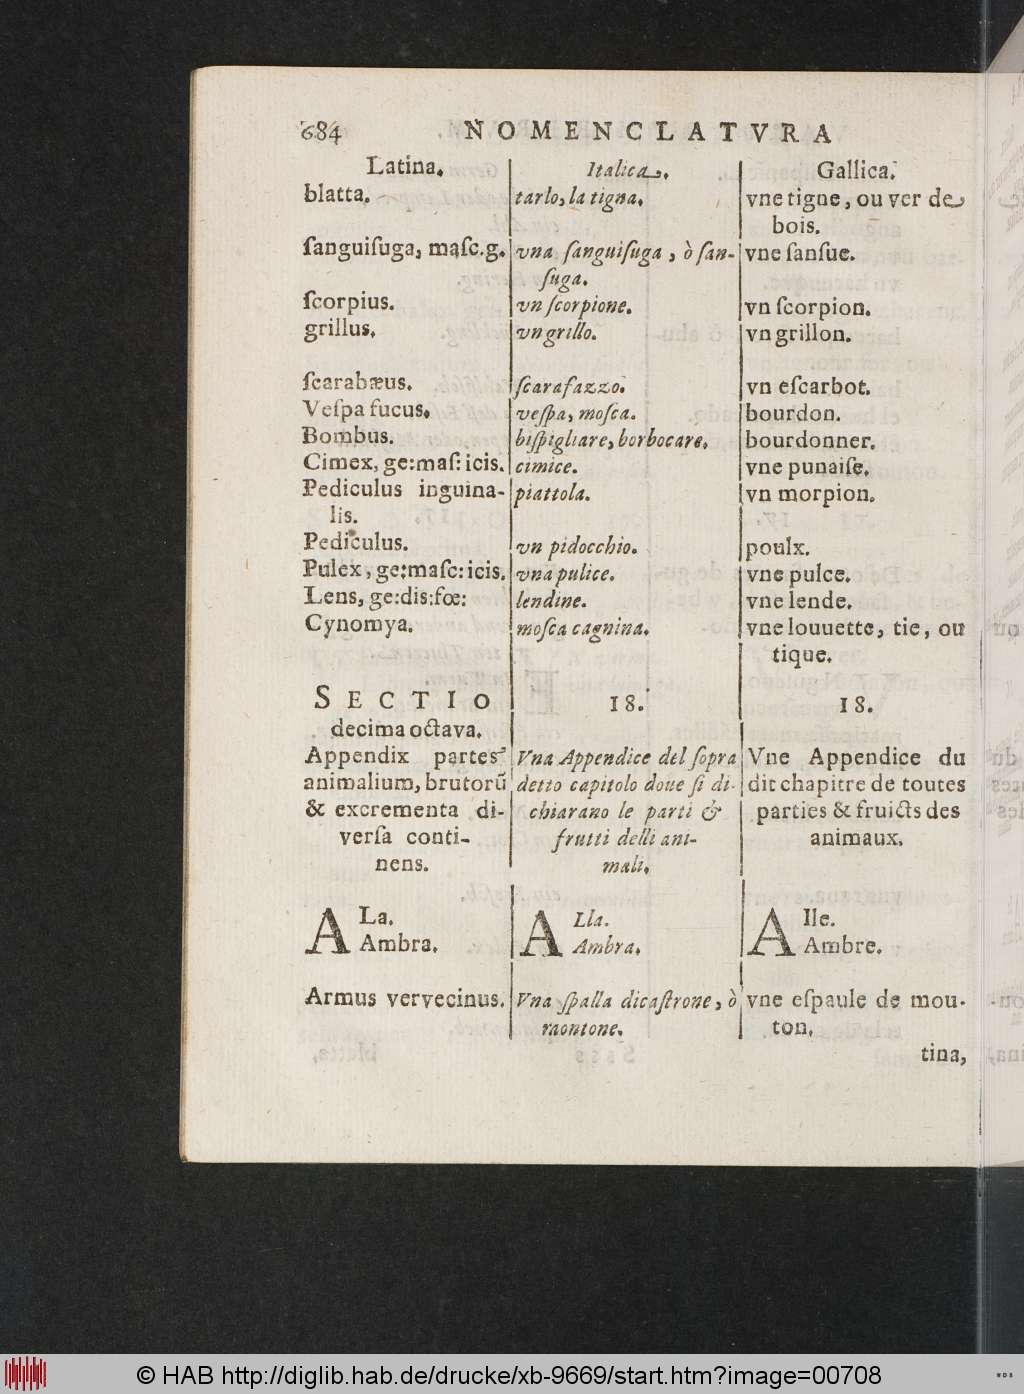 684 NOMENCLATVRA
Latina. Italica. Gallica.
blatta. tarlo, la tigna. vne tigne, ou ver de
bois.
ſanguiſuga, maſc.g. vna ſanguiſuga, ò ſan- vne ſanſue.
ſuga.
ſcorpius. vn ſcorpione. vn ſcorpion.
grillus. vn grillo. vn grillon.
ſcarabæus. ſcarafazzo. vn eſcarbot.
Veſpa fucus. veſpa, moſca. bourdon.
Bombus. biſpigliare, borbocare. bourdonner.
Cimex, ge:maſ: icis. cimice. vne punaiſe.
Pediculus inguina- piattola. vn morpion.
lis.
Pediculus. vn pidocchio. poulx.
Pulex, ge:maſc: icis. vna pulice. vne pulce.
Lens, ge:dis:fœ: lendine. vne lende.
Cynomya. moſca cagnina. vne louuette, tie, ou
tique.
SECTIO 18. 18.
decima octava.
Appendix partes Vna Appendice del ſopra Vne Appendice du
animalium, brutorū detto capitolo doue ſi di- dit chapitre de toutes
& excrementa di- chiarano le parti & parties & fruicts des
verſa conti- frutti delli ani- animaux.
nens. mali.
ALa. ALla. AIle.
Ambra. Ambra. Ambre.
Armus vervecinus. Vna ſpalla dicaſtrone, ò vne eſpaule de mou-
raontone. ton.
tina,
© HAB http://diglib.hab.de/drucke/xb-9669/start.htm?image=00708